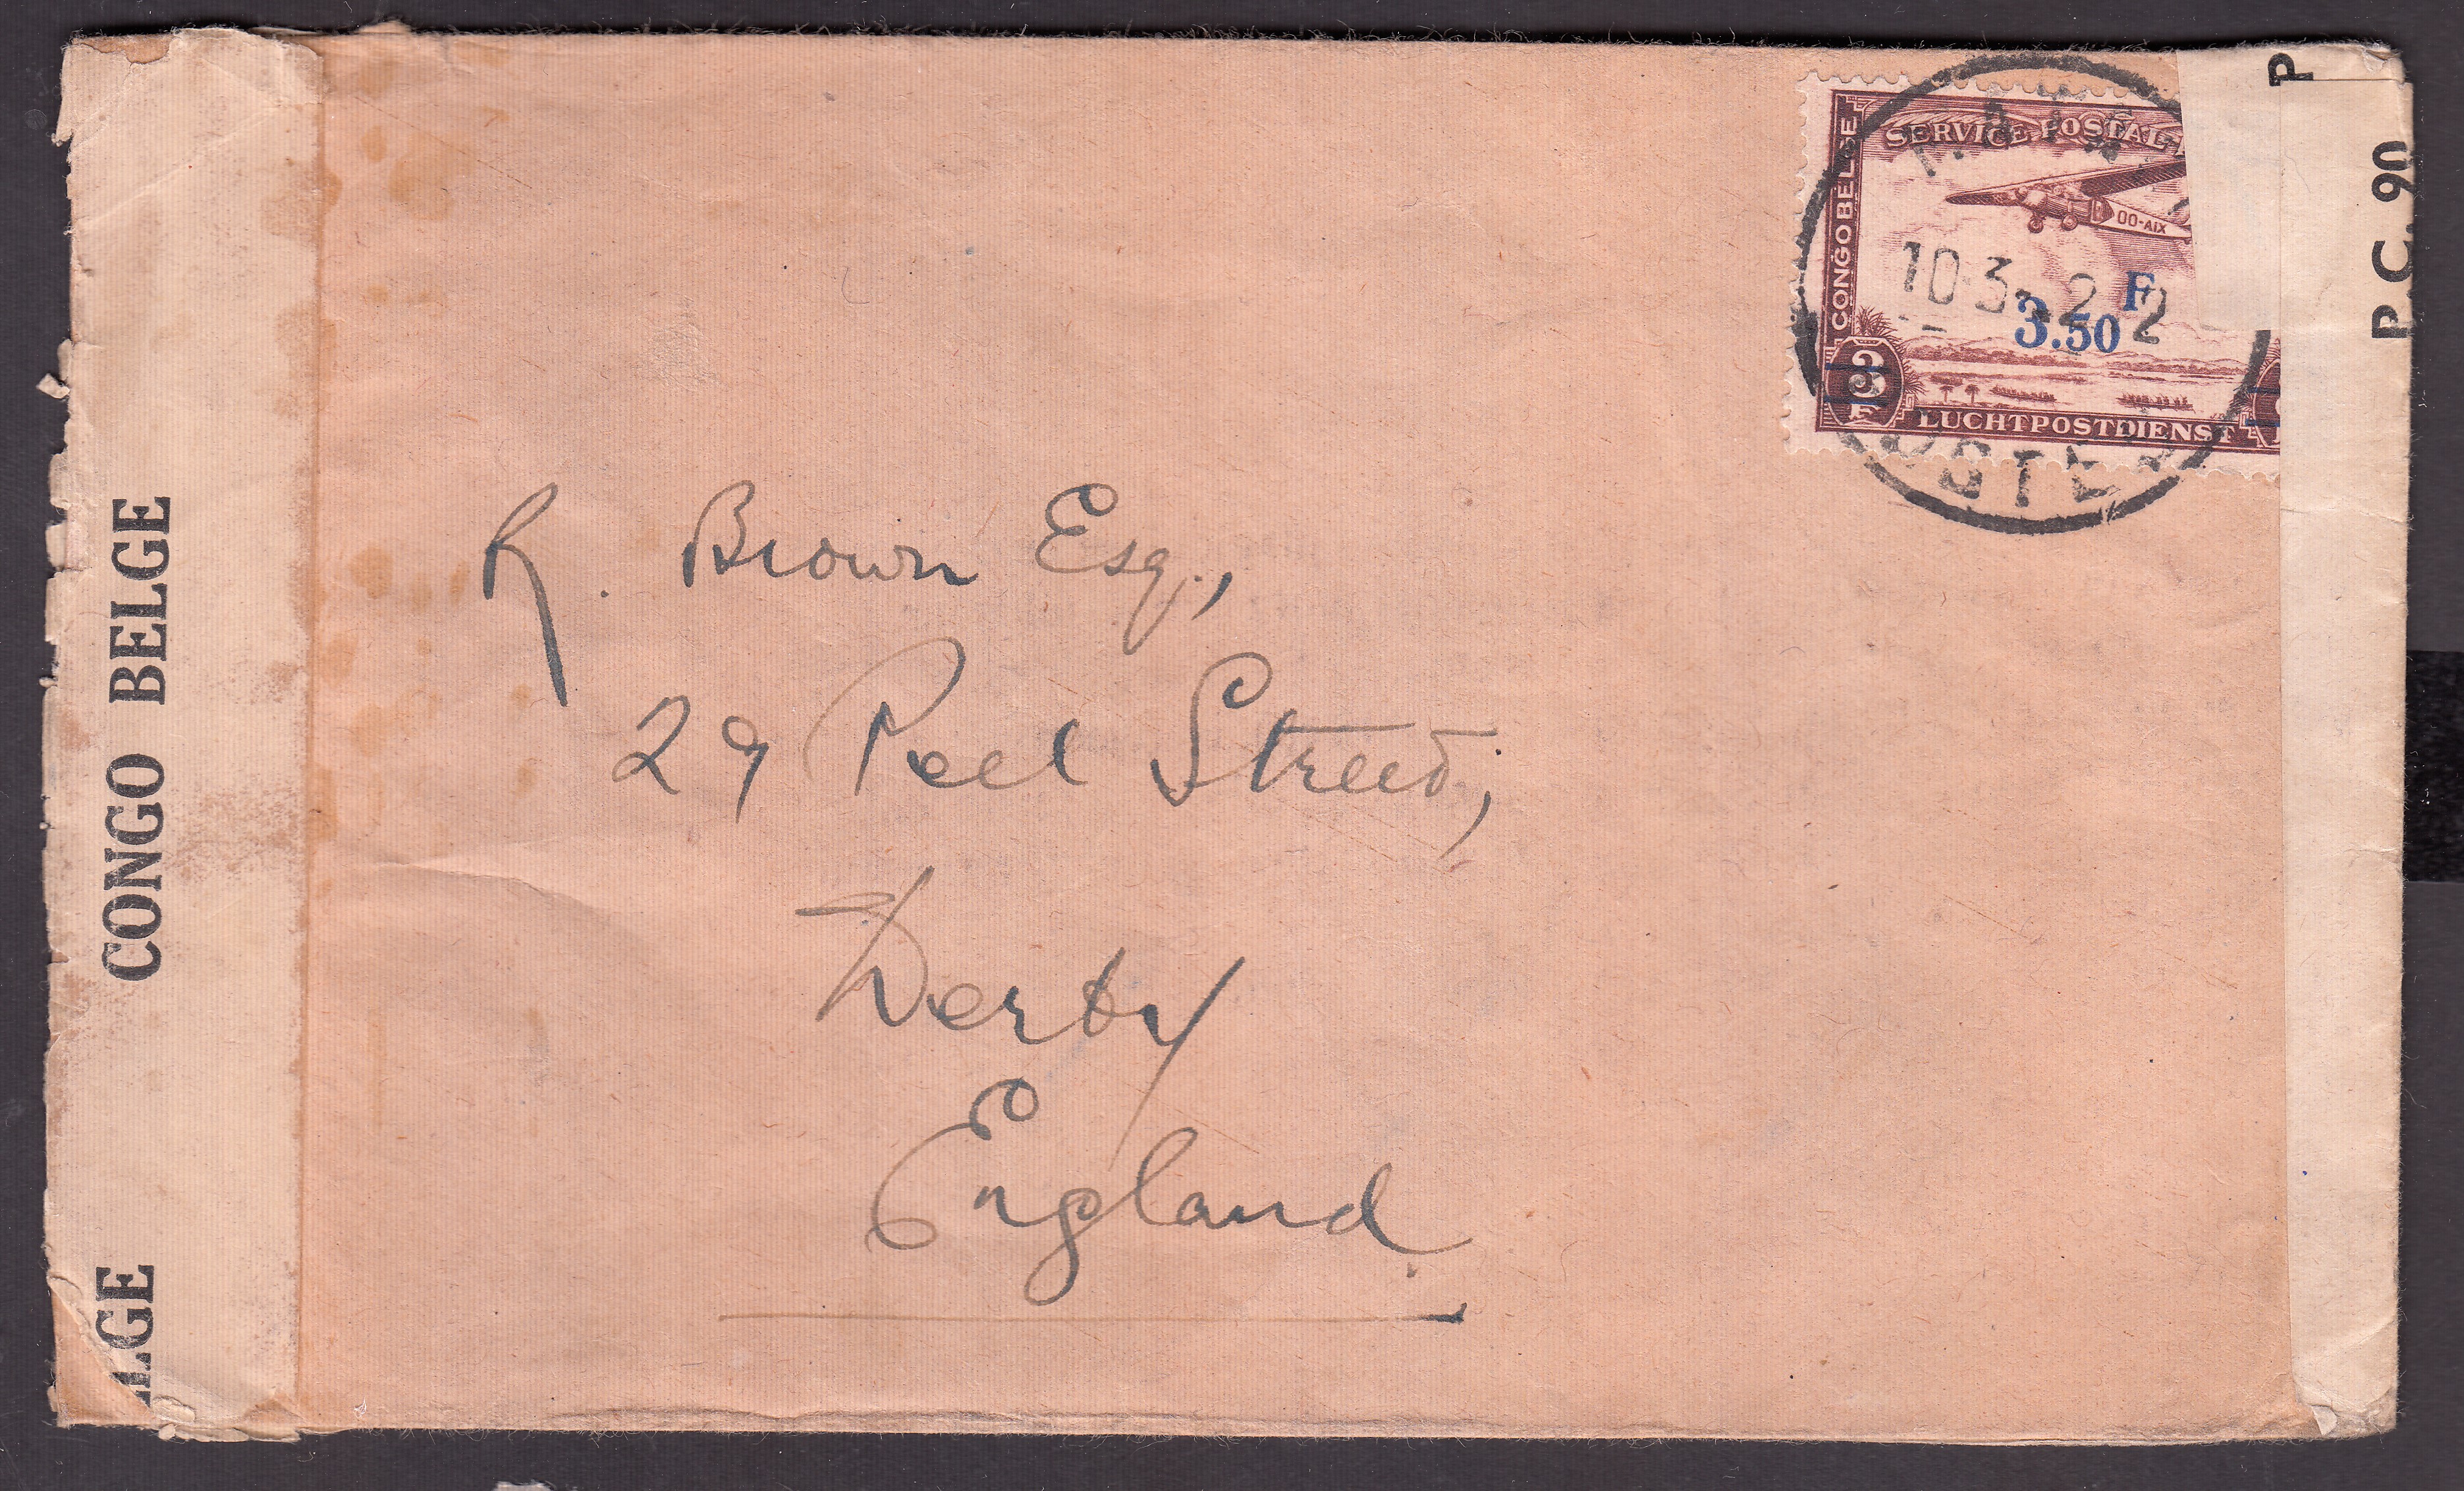 CONGO BELGE
LGE
SERVICE POSTAL
CONGO BELGE
OO-AIX
10-3-22
F
3.50
3
F
LUCHTPOSTDIENST
P
P.C. 90
R. Brown Esq.,
29 Peel Street,
Derby
England